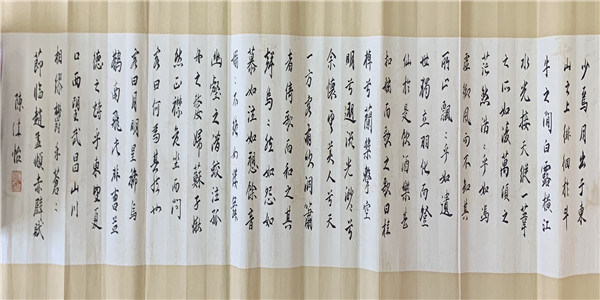 少焉月出于東
山之上徘徊於斗
牛之間白露橫江
水光接天縱一葦
之所如凌萬頃之
茫然浩〻乎如馮
虛御風而不知其
所止飄〻乎如遺
世獨立羽化而登
仙於是飲酒樂甚
扣舷而歌之歌曰桂
棹兮蘭槳擊空
明兮遡流光渺〻兮
余懷望美人兮天
一方客有吹洞簫
者倚歌而和之其
聲嗚〻然如怨如
慕如泣如愬餘音
嫋〻不絕如縷舞
幽壑之潛蛟泣孤
舟之嫠婦蘇子愀
然正襟危坐而問
客曰何為其然也
客曰月明星稀烏
鵲南飛此非曹孟
德之詩乎東望夏
口西望武昌山川
相繆鬱乎蒼〻
節臨趙孟頫赤壁賦
陳佳怡